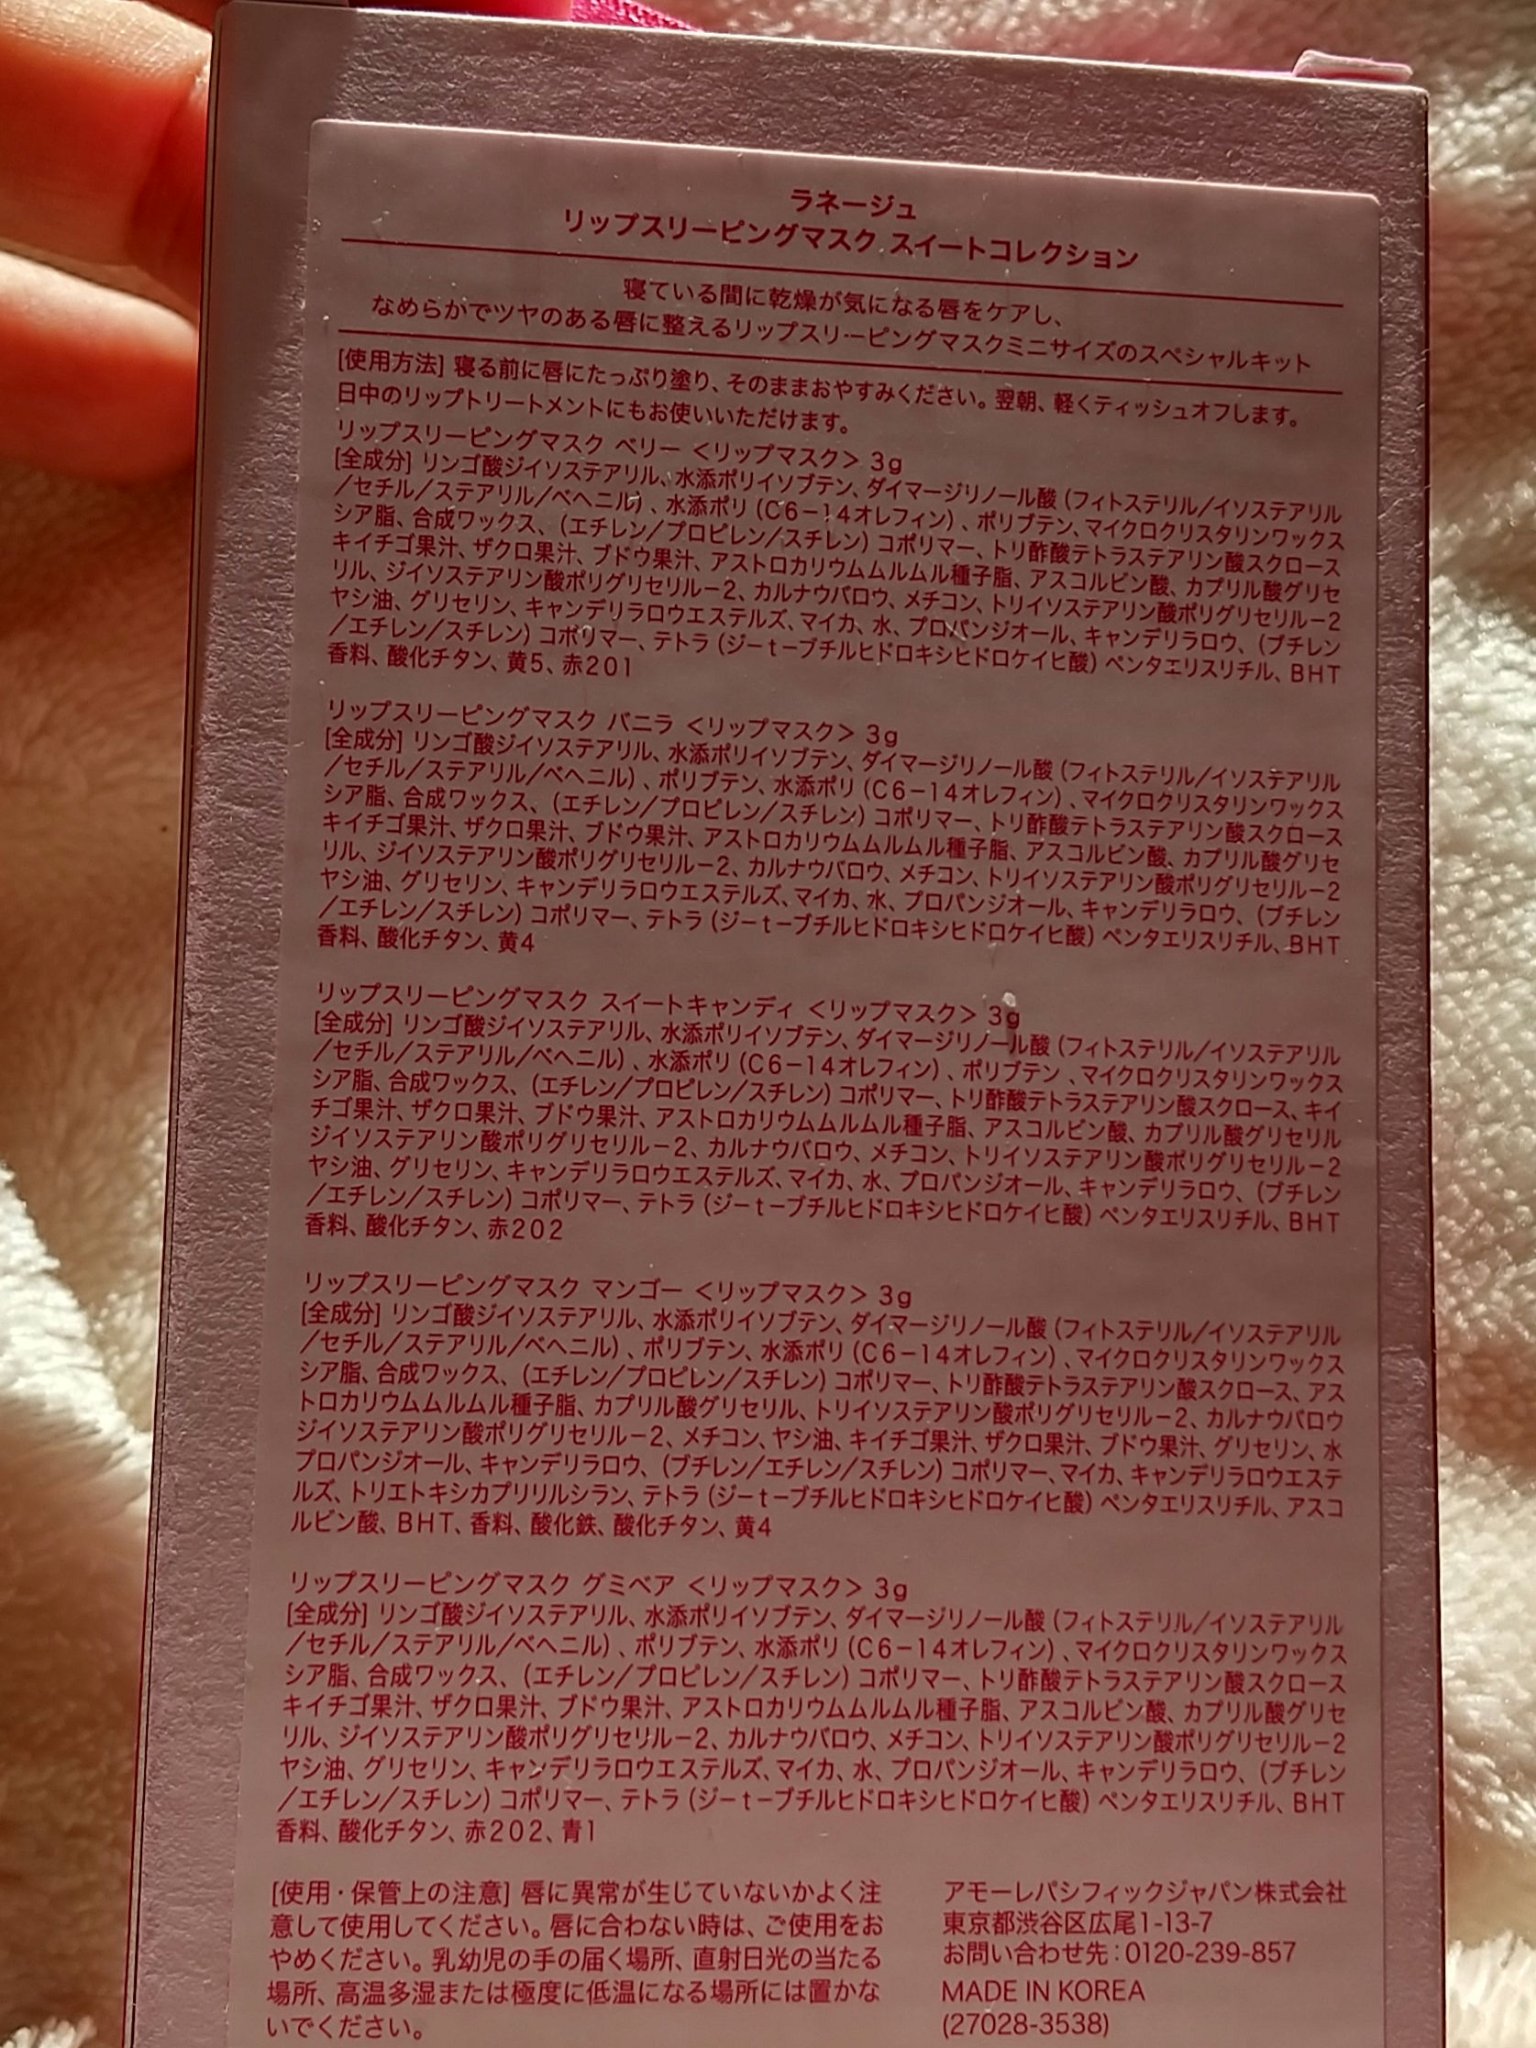 ラネージュ
リップスリーピングマスク スイートコレクション
寝ている間に乾燥が気になる唇をケアし、
なめらかでツヤのある唇に整えるリップスリーピングマスクミニサイズのスペシャルキット
[使用方法] 寝る前に唇にたっぷり塗り、そのままおやすみください。翌朝、軽くティッシュオフします。
日中のリップトリートメントにもお使いいただけます。
リップスリーピングマスク ベリー <リップマスク> 3g
[全成分] リンゴ酸ジイソステアリル、水添ポリイソブテン、ダイマージリノール酸 (フィトステリル/イソステアリル
/セチル/ステアリル/ベヘニル) 、水添ポリ (C6-14オレフィン) 、ポリブテン、マイクロクリスタリンワックス
シア脂、合成ワックス、(エチレン/プロピレン/スチレン) コポリマー、トリ酢酸テトラステアリン酸スクロース
キイチゴ果汁、ザクロ果汁、ブドウ果汁、アストロカリウムムルムル種子脂、アスコルビン酸、カプリル酸グリセ
リル、ジイソステアリン酸ポリグリセリル-2、カルナウバロウ、メチコン、トリイソステアリン酸ポリグリセリル-2
ヤシ油、グリセリン、キャンデリラロウエステルズ、マイカ、水、プロパンジオール、キャンデリラロウ、(ブチレン
/エチレン/スチレン) コポリマー、テトラ (ジ-t-ブチルヒドロキシヒドロケイヒ酸) ペンタエリスリチル、BHT
香料、酸化チタン、黄5、赤201
リップスリーピングマスク バニラ <リップマスク> 3g
[全成分] リンゴ酸ジイソステアリル、水添ポリイソブテン、ダイマージリノール酸 (フィトステリル/イソステアリル
/セチル/ステアリル/ベヘニル) 、ポリブテン、水添ポリ (C6-14オレフィン) 、マイクロクリスタリンワックス
シア脂、合成ワックス、(エチレン/プロピレン/スチレン) コポリマー、トリ酢酸テトラステアリン酸スクロース
キイチゴ果汁、ザクロ果汁、ブドウ果汁、アストロカリウムムルムル種子脂、アスコルビン酸、カプリル酸グリセ
リル、ジイソステアリン酸ポリグリセリル-2、カルナウバロウ、メチコン、トリイソステアリン酸ポリグリセリル-2
ヤシ油、グリセリン、キャンデリラロウエステルズ、マイカ、水、プロパンジオール、キャンデリラロウ、(ブチレン
/エチレン/スチレン) コポリマー、テトラ (ジ-t-ブチルヒドロキシヒドロケイヒ酸) ペンタエリスリチル、BHT
香料、酸化チタン、黄4
リップスリーピングマスク スイートキャンディ <リップマスク> 3g
[全成分] リンゴ酸ジイソステアリル、水添ポリイソブテン、ダイマージリノール酸 (フィトステリル/イソステアリル
/セチル/ステアリル/ベヘニル) 、水添ポリ (C6-14オレフィン) 、ポリブテン 、マイクロクリスタリンワックス
シア脂、合成ワックス、(エチレン/プロピレン/スチレン) コポリマー、トリ酢酸テトラステアリン酸スクロース、キイ
チゴ果汁、ザクロ果汁、ブドウ果汁、アストロカリウムムルムル種子脂、アスコルビン酸、カプリル酸グリセリル
ジイソステアリン酸ポリグリセリル-2、カルナウバロウ、メチコン、トリイソステアリン酸ポリグリセリル-2
ヤシ油、グリセリン、キャンデリラロウエステルズ、マイカ、水、プロパンジオール、キャンデリラロウ、(ブチレン
/エチレン/スチレン) コポリマー、テトラ (ジ-t-ブチルヒドロキシヒドロケイヒ酸) ペンタエリスリチル、BHT
香料、酸化チタン、赤202
リップスリーピングマスク マンゴー <リップマスク> 3g
[全成分] リンゴ酸ジイソステアリル、水添ポリイソブテン、ダイマージリノール酸 (フィトステリル/イソステアリル
/セチル/ステアリル/ベヘニル) 、ポリブテン、水添ポリ (C6-14オレフィン) 、マイクロクリスタリンワックス
シア脂、合成ワックス、(エチレン/プロピレン/スチレン) コポリマー、トリ酢酸テトラステアリン酸スクロース、アス
トロカリウムムルムル種子脂、カプリル酸グリセリル、トリイソステアリン酸ポリグリセリル-2、カルナウバロウ
ジイソステアリン酸ポリグリセリル-2、メチコン、ヤシ油、キイチゴ果汁、ザクロ果汁、ブドウ果汁、グリセリン、水
プロパンジオール、キャンデリラロウ、(ブチレン/エチレン/スチレン) コポリマー、マイカ、キャンデリラロウエステ
ルズ、トリエトキシカプリリルシラン、テトラ (ジ-t-ブチルヒドロキシヒドロケイヒ酸) ペンタエリスリチル、アスコ
ルビン酸、BHT、香料、酸化鉄、酸化チタン、黄4
リップスリーピングマスク グミベア <リップマスク> 3g
[全成分] リンゴ酸ジイソステアリル、水添ポリイソブテン、ダイマージリノール酸 (フィトステリル/イソステアリル
/セチル/ステアリル/ベヘニル) 、ポリブテン、水添ポリ (C6-14オレフィン) 、マイクロクリスタリンワックス
シア脂、合成ワックス、(エチレン/プロピレン/スチレン) コポリマー、トリ酢酸テトラステアリン酸スクロース
キイチゴ果汁、ザクロ果汁、ブドウ果汁、アストロカリウムムルムル種子脂、アスコルビン酸、カプリル酸グリセ
リル、ジイソステアリン酸ポリグリセリル-2、カルナウバロウ、メチコン、トリイソステアリン酸ポリグリセリル-2
ヤシ油、グリセリン、キャンデリラロウエステルズ、マイカ、水、プロパンジオール、キャンデリラロウ、(ブチレン
/エチレン/スチレン) コポリマー、テトラ (ジ-t-ブチルヒドロキシヒドロケイヒ酸) ペンタエリスリチル、BHT
香料、酸化チタン、赤202、青1
[使用・保管上の注意] 唇に異常が生じていないかよく注
意して使用してください。唇に合わない時は、ご使用をお
やめください。乳幼児の手の届く場所、直射日光の当たる
場所、高温多湿または極度に低温になる場所には置かな
いでください。
アモーレパシフィックジャパン株式会社
東京都渋谷区広尾1-13-7
お問い合わせ先：0120-239-857
MADE IN KOREA
(27028-3538)